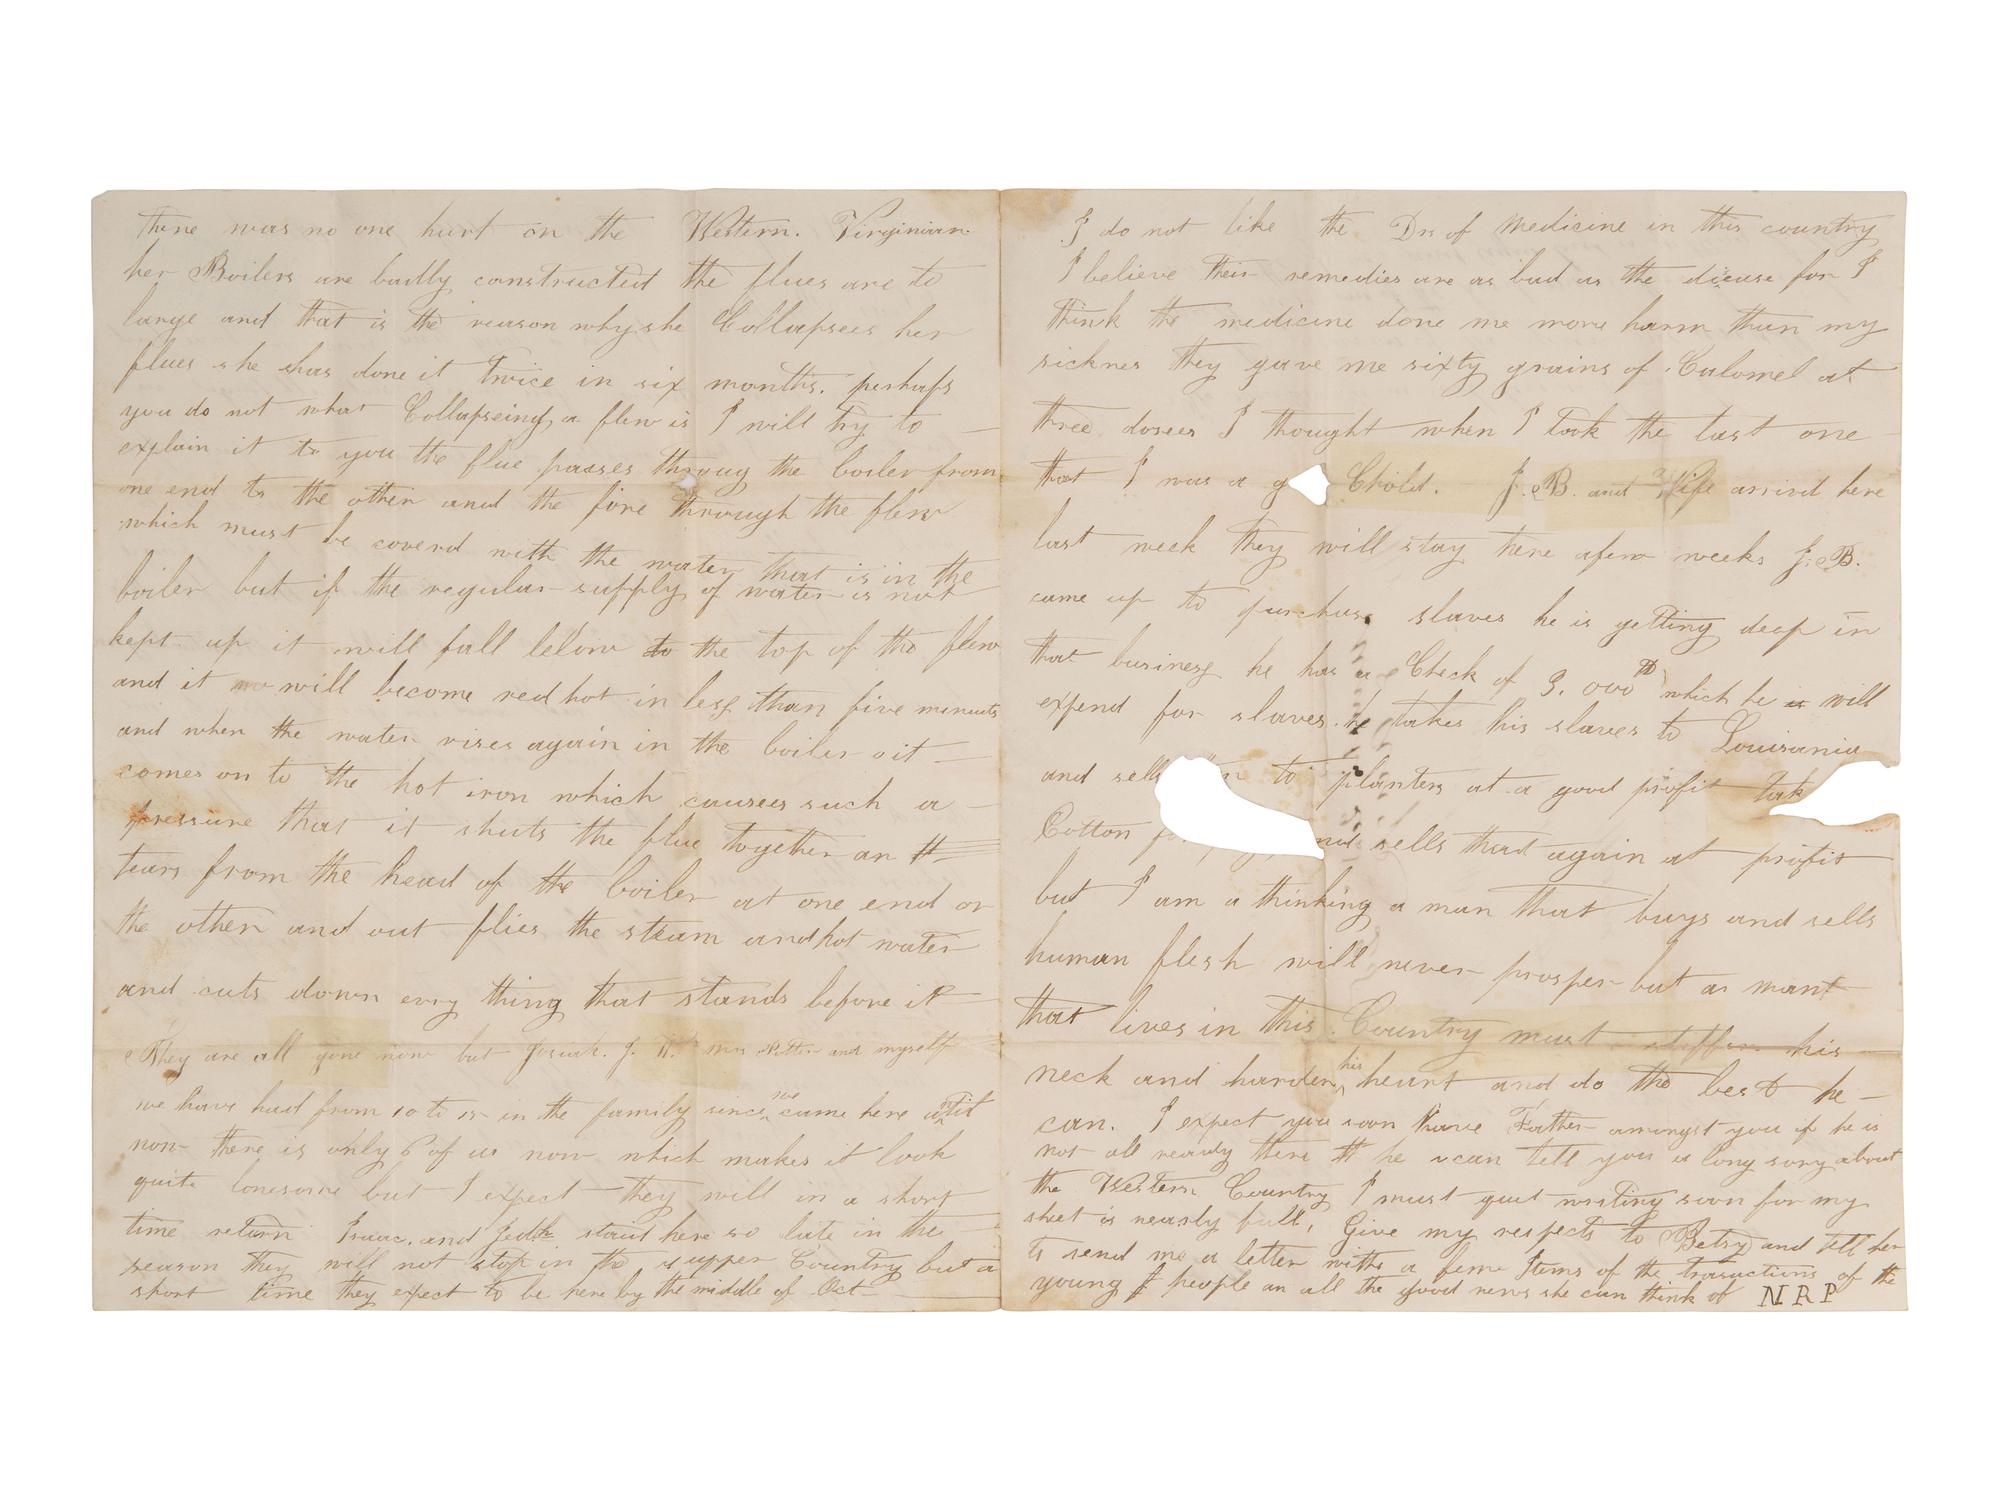 There was no one hurt on the Western. Virginian
her Boilers are badly constructed the flues are to
large and that is the reason why she Collapsees her
flues she has done it twice in six months. perhaps
you do not what Collapseing a flew is I will try to
explain it to you the flue passes throug the boiler from
one end to the other and the fire through the flew
which must be coverd with the water that is in the
boiler but if the regular supply of water is not
kept up it will fall below to the top of the flew
and it will become red hot in less than five minuts
and when the water rises again in the boiler oit
comes on to the hot iron which causees such a
pressure that it shuts the flue together an tt
tears from the head of the boiler at one end or
the other and out flies the steam and hot water
and cuts down evry thing that stands before it
They are all gone now but Josiah. J. H. Mrs and myself
we have had from 10 to 15 in the family since we came here until
now there is only 6 of us now which makes it look
quite lonesome but I expect they will in a short
time return Isaac. and Jedth staid here so late in the
season they will not stop in the upper Country but a
short time they expect to be here by the middle of Oct
I do not like the Drs of Medicine in this country
I believe their remedies are as bad as the diease for I
think the medicine done me more harm than my
sicknes they gave me sixty grains of Calomel at
three dosees I thought when I took the last one
that I was a g Chold. J. B. and Wife arrivd here
last week they will stay here afew weeks J. B.
came up to purchase slaves he is getting deep in
that business he has a Check of 3. 000 which he is will
expend for slaves. he takes his slaves to Louisania
and sells to planters at a good profit tak
Cotton and sells that again at profit
but I am a thinking a man that buys and sells
human flesh will never prosper but a mant
that lives in this Country must stiffen his
neck and harden his heart and do the best he
can. I expect you soon have Father amongst you if he is
not all ready there tt he can tell you a long sory about
the Western Country I must quit writing soon for my
sheet is nearly full, Give my respects to Betsy and tell her
to send me a letter with a feme Items of the trasuctions of the
young people an all the good news she can think of N R P